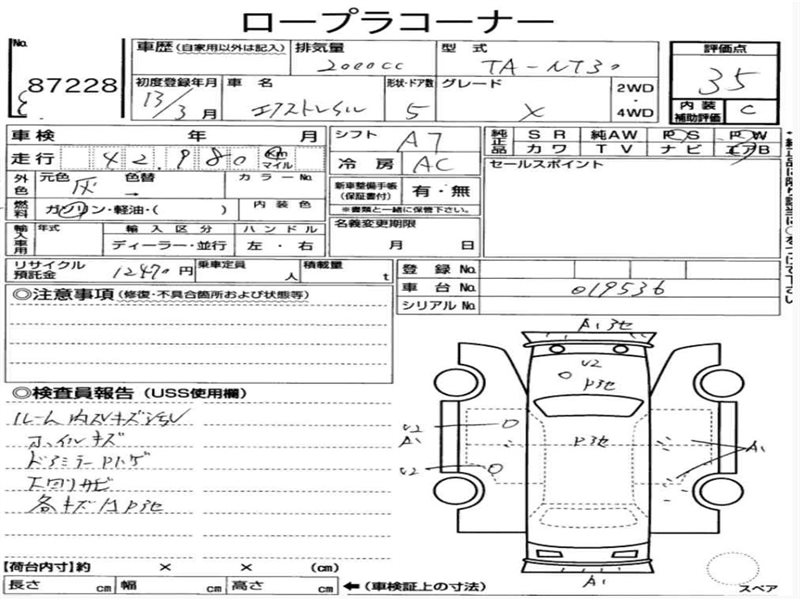 ロープラコーナー
No.
87228
車歴（自家用以外は記入）
排気量
2000cc
型式
TA-NT30
評価点
35
初度登録年月
13/3月
車名
エクストレイル
形状・ドア数
5
グレード
X
2WD
・
4WD
内装
補助評価
C
車検 年 月
シフト
A7
純正品
SR 純AW PS PW
カワ TV ナビ エアB
走行 42,980 km
マイル
冷房
AC
セールスポイント
外色
元色 灰
色替 →
カラーNo.
新車整備手帳
（保証書付）
有・無
※書類と一緒に保管下さい。
燃料
ガソリン・軽油・（ ）
内装色
輸入車用
年式
輸入区分
ディーラー・並行
ハンドル
左・右
名義変更期限
月 日
リサイクル
預託金
12470円
乗車定員
人
積載量
t
登録No.
車台No.
019536
シリアルNo.
◎注意事項（修復・不具合箇所および状態等）
◎検査員報告（USS使用欄）
ルーム内スレキズ
ホイルキズ
ドアミラーPハゲ
下回りサビ
各キズ凹P3セ
A1 3セ
U2
P3セ
P3セ
U2
A1
U2
A1
A1
【荷台内寸】約 × × （cm）
長さ cm 幅 cm 高さ cm ←（車検証上の寸法）
スペア